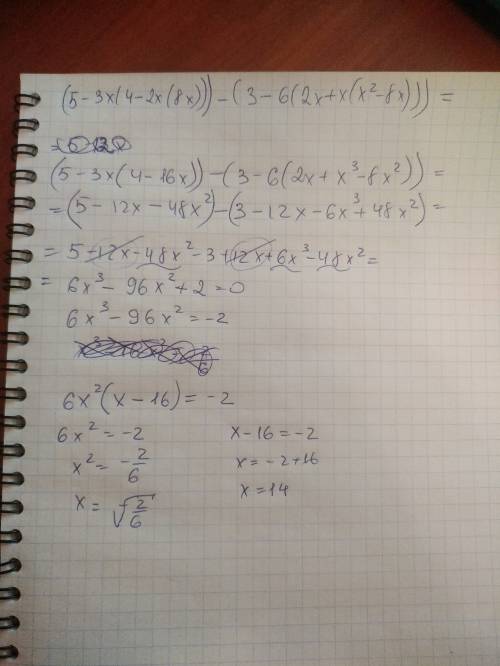 (5-3x(4-2x(8x)))-(3-6(2x+x(x²-8x)))=
(5-3x(4-16x))-(3-6(2x+x³-8x²))=
=(5-12x-48x²)-(3-12x-6x³+48x²)=
=5-12x-48x²-3+12x+6x³-48x²=
= 6x³-96x²+2=0
6x³-96x²=-2
6x²(x-16)=-2
6x²=-2 x-16=-2
x²=-2/6 x=-2+16
x=√(2/6) x=14